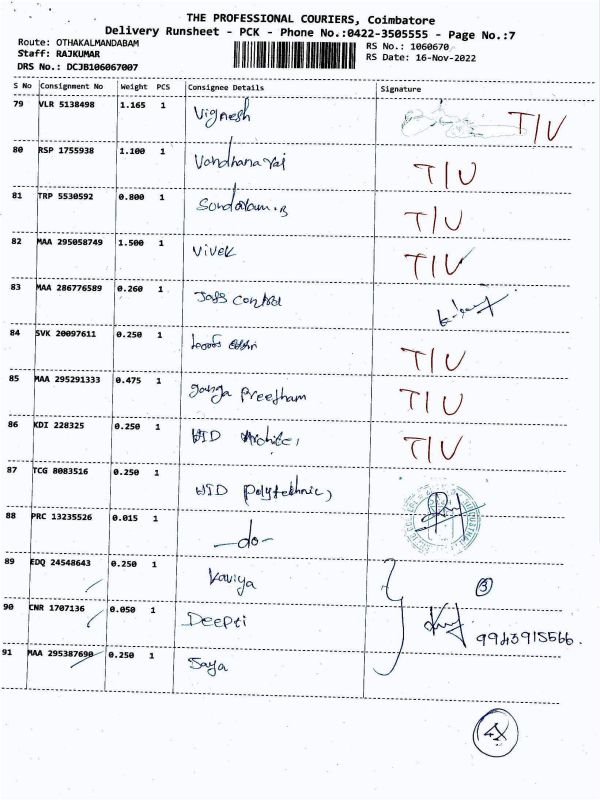 THE PROFESSIONAL COURIERS, Coimbatore
Delivery Runsheet - PCK - Phone No.:0422-3505555 - Page No.:7
Route: OTHAKALMANDABAM RS No.: 1060670
Staff: RAJKUMAR RS Date: 16-Nov-2022
DRS No.: DCJB106067007
S No Consignment No Weight PCS Consignee Details Signature
79 VLR 5138498 1.165 1 Vignesh T/U
80 RSP 1755938 1.100 1 Vandhana raj T/U
81 TRP 5530592 0.800 1 T/U
82 MAA 295058749 1.500 1 Vivek T/U
83 MAA 286776589 0.260 1 control
84 SVK 20097611 0.250 1 T/U
85 MAA 295291333 0.475 1 Ganga Preetham T/U
86 KDI 228325 0.250 1 T/U
87 TCG 8083516 0.250 1 (Polytechnic)
88 PRC 13235526 0.015 1 -do-
89 EDQ 24548643 0.250 1 Kaviya 3
90 CNR 1707136 0.050 1 Deepti 9943915566.
91 MAA 295387690 0.250 1 Jaya